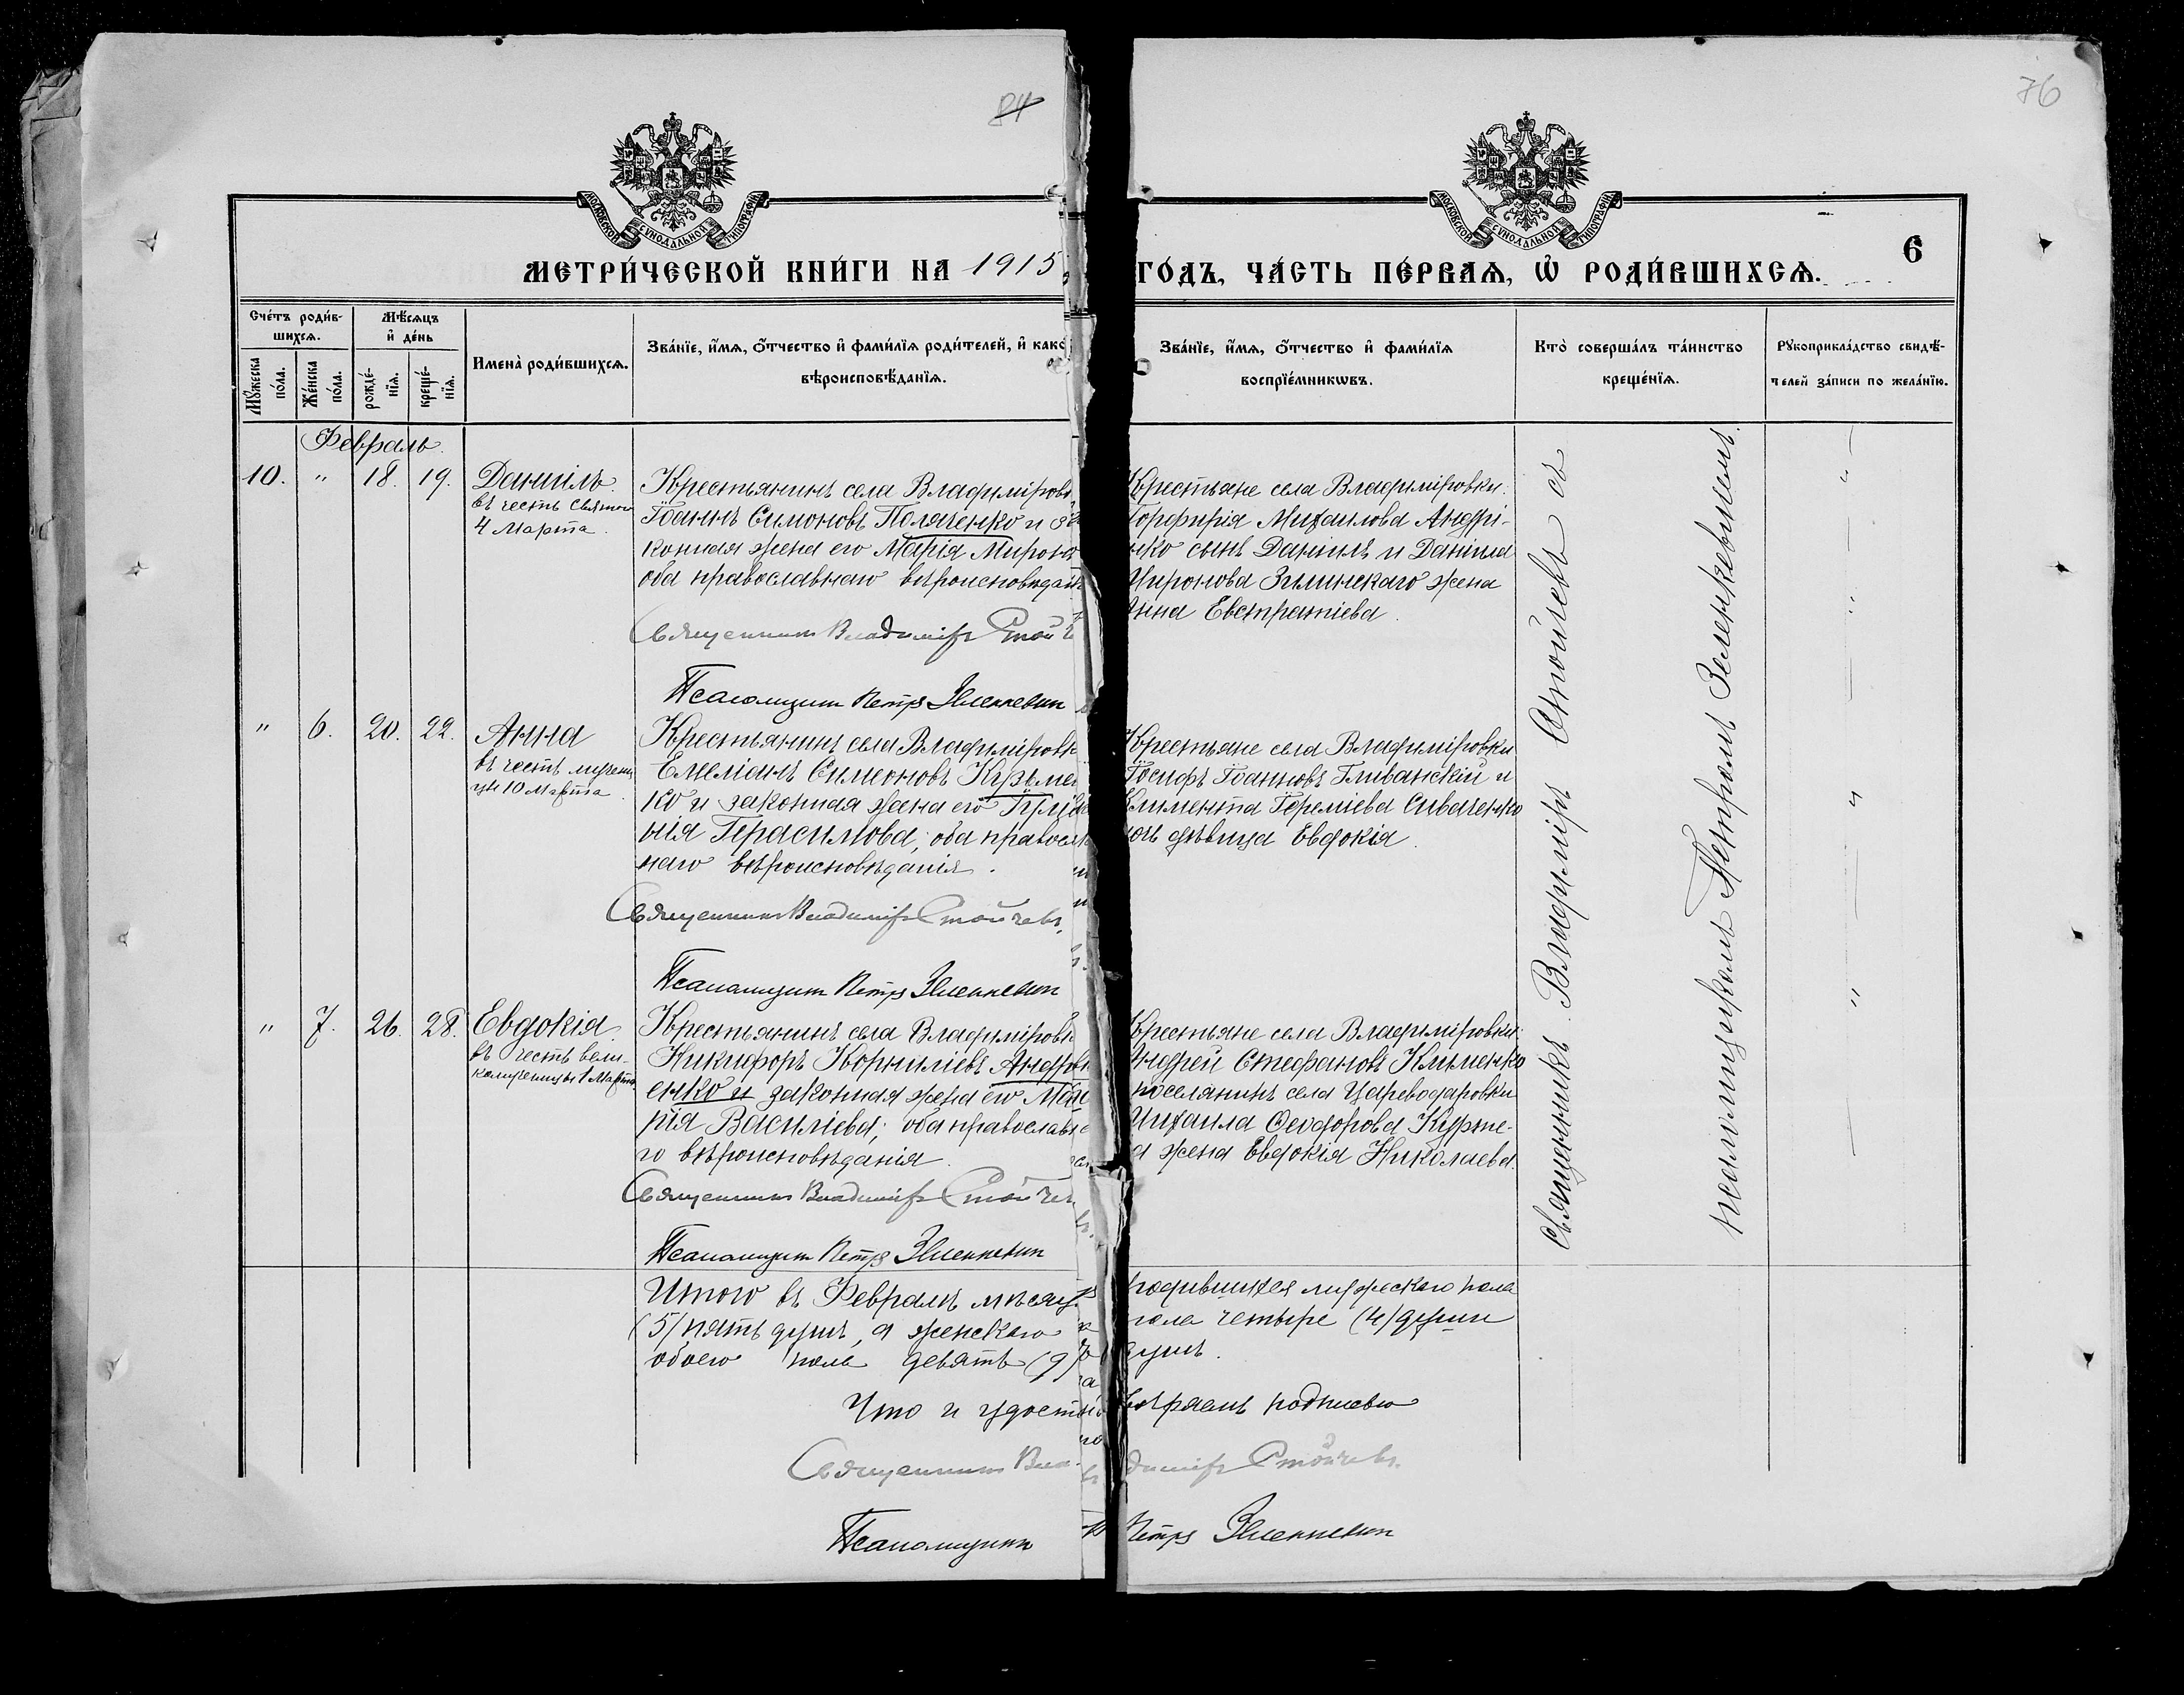 84
76
МОСКОВСКОЙ СѴНОДАЛЬНОЙ ТИПОГРАФІИ
МОСКОВСКОЙ СѴНОДАЛЬНОЙ ТИПОГРАФІИ
6
МЕТРИ́ЧЕСКОЙ КНИ́ГИ НА 1915
ГО́ДЪ, ЧА́СТЬ ПЕ́РВАѦ, Ѡ҆ РОДИ́ВШИХСѦ.
Сче́тъ роди́в-
шихсѧ.
Мꙋ́жеска
по́ла.
Же́нска
по́ла.
Мѣ́сѧцъ
и҆ де́нь
рожде́-
нїѧ.
креще́-
нїѧ.
Имена̀ роди́вшихсѧ.
Зва́нїе, и҆́мѧ, ѻ҆́тчество и҆ фами́лїѧ роди́телей, и҆ како
вѣроисповѣ́данїѧ.
Зва́нїе, и҆́мѧ, ѻ҆́тчество и҆ фами́лїѧ
воспрїе́мникѡвъ.
Кто̀ соверша́лъ та́инство
креще́нїѧ.
Рꙋкоприкла́дство свидѣ́-
телей за́писи по жела́нїю.
Февраль.
10. " 18. 19. Даніилъ.
въ честь Святого
4 Марта.
Крестьянинъ села Владиміров
Іоаннъ Симоновъ Поляченко и за
конная жена его Марія Мирон
оба православнаго вѣроисповѣдан
Священникъ Владиміръ Стойч
Псаломщикъ Петръ Зеленкевич
Крестьяне села Владиміровки:
Порфирія Михаилова Андрі-
нко сынъ Даніилъ и Даніила
Миронова Зилинскаго жена
Анна Евстратіева.
" 6. 20. 22. Анна
въ честь мучени
цы 10 Марта.
Крестьянинъ села Владиміровк
Емеліанъ Симеоновъ Кузьмен
ко и законная жена его
нія Герасимова; оба правосл
наго вѣроисповѣданія.
Священникъ Владиміръ Стойчевъ,
Псаломщикъ Петръ Зеленкевич
Крестьяне села Владиміровки
Іосифъ Іоанновъ Гливанскій и
Климента Іереміева Сиваченко
дочь дѣвица Евдокія.
" 7. 26. 28. Евдокія.
въ честь вели-
комученицы 1 Марта
Крестьянинъ села Владиміровк
Никифоръ Корниліевъ Андрю
енко и законная жена его Ма
рія Василіева; оба православна
го вѣроисповѣданія.
Священникъ Владиміръ Стойчев
Псаломщикъ Петръ Зеленкевич
Крестьяне села Владиміровки:
Андрей Стефановъ Клименко
поселянинъ села Цареводаровки
Михаила Ѳеодорова
а жена Евдокія Николаева.
Священникъ Владиміръ Стойчевъ съ
псаломщикомъ Петромъ Зеленкевичемъ.
Итого въ Февралѣ мѣсяц родившихся мужескаго пола
(5) пять душъ, а женскаго пола четыре (4) души
обоего пола девять (9) душъ.
Что и удостовѣряемъ подписью
Священникъ Владиміръ Стойчевъ.
Псаломщикъ Петръ Зеленкевич